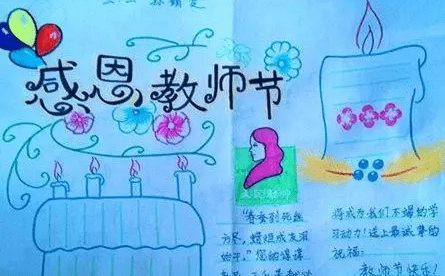 感恩教师节
"春蚕到死丝
方尽,蜡炬成灰泪
始干。"您的谆谆
将成为我们不竭的学
习动力!送上最诚挚的
祝福:
教师节快乐!